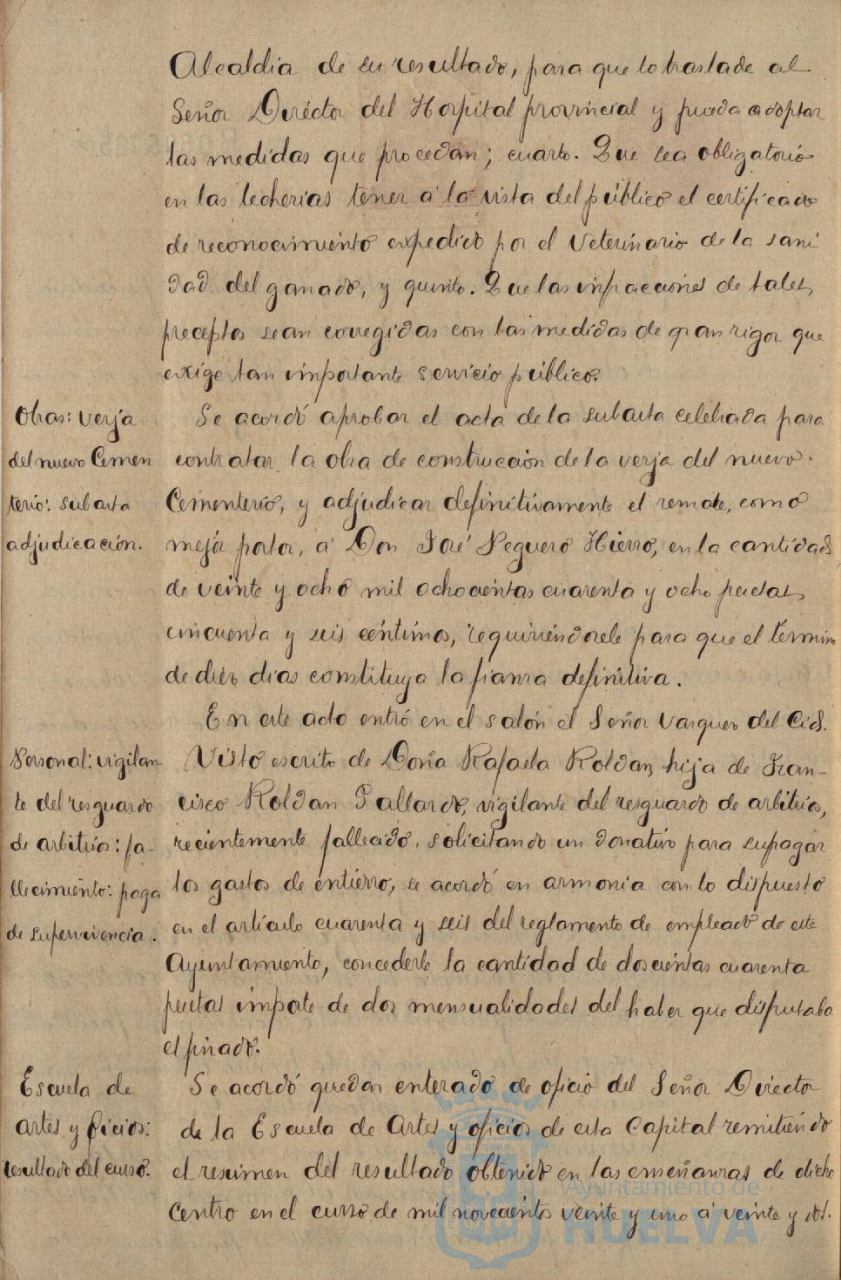 Alcaldia de su resultado, para que lo traslade al
Señor Diréctor del Hospital provincial y pueda adoptar
las medidas que procedan; cuarto. Que sea obligatorio
en las lecherias tener á la vista del público el certificado
de reconocimiento expedido por el Veterinario de la sani
dad del ganado, y quinto. Que las infracciones de tales
preceptos sean corregidas con las medidas de gran rigor que
exige tan importante servicio público.
Obras: verja
del nuevo Cemen
terio: subasta
adjudicación.
Se acordó aprobar el acta de la subasta celebrada para
contratar la obra de construcción de la verja del nuevo
Cementerio, y adjudicar definitivamente el remate, como
mejor postor, á Don José Peguero Hierro, en la cantidad
de veinte y ocho mil ochocientas cuarenta y ocho pesetas
cincuenta y seis céntimos, requiriéndosele para que el término
de diez dias constituya la fianza definitiva.
En este acto entró en el salón el Señor Vazquez del Cid.
Personal: vigilan
te del resguardo
de arbitrios: fa-
llecimiento: paga
de supervivencia.
Visto escrito de Doña Rafaela Roldan, hija de Fran-
cisco Roldan Gallardo, vigilante del resguardo de arbitrios,
recientemente fallecido, solicitando un donativo para sufragar
los gastos de entierro, se acordó en armonia con lo dispuesto
en el artículo cuarenta y seis del reglamento de empleado de este
Ayuntamiento, concederle la cantidad de doscientas cuarenta
pesetas importe de dos mensualidades del haber que disfrutaba
el finado.
Escuela de
artes y oficios:
resultado del curso.
Se acordó quedar enterado de oficio del Señor Director
de la Escuela de Artes y oficios de esta Capital remitiendo
el resumen del resultado obtenido en las enseñanzas de dicho
Centro en el curso de mil novecientos veinte y uno á veinte y dos.
Ayuntamiento de
HUELVA